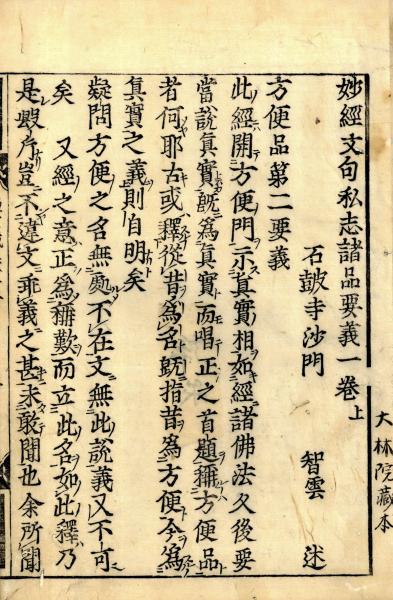 大林院藏本
妙經文句私志諸品要義一卷上
石皷寺沙門　智雲　述
方便品第二要義
此經開方便門示真實相如經諸佛法久後要
當說真實既為真實而唱正之首題稱方便品
者何耶古或釋從昔為名既指昔為方便今為
真實之義則自明矣
疑問方便之名無處不在文無此說義又不可
矣　又經之意正為稱歎而立此名如此釋乃
是毀斥豈不違文乖義之甚未敢聞也　余所聞